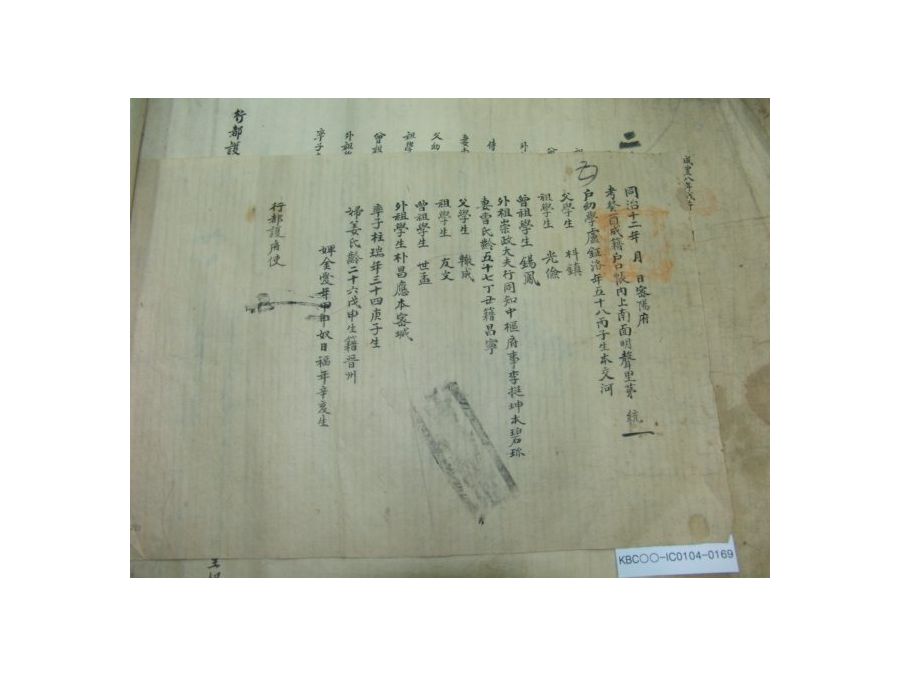 咸豐八年戊午
同治十二年 月 日密陽府
考癸酉成籍戶口帳內上南面明聲里第 統
戶幼學盧鉦洛年五十八丙子生本交河
父學生 科鎮
祖學生 光儉
曾祖學生 錫鳳
外祖崇政大夫行同知中樞府事李挺坤本碧珍
妻曺氏齡五十七丁丑籍昌寧
父學生 轍成
祖學生 友文
曾祖學生 世孟
外祖學生朴昌應本密城
率子柱瑞年三十四庚子生
婦姜氏齡二十六戊申生籍晉州
婢金愛年甲申奴日福年辛亥生
行都護府使
行都護
率子
外祖
曾祖
祖學
父幼
妻
KBC〇〇-IC0104-0169